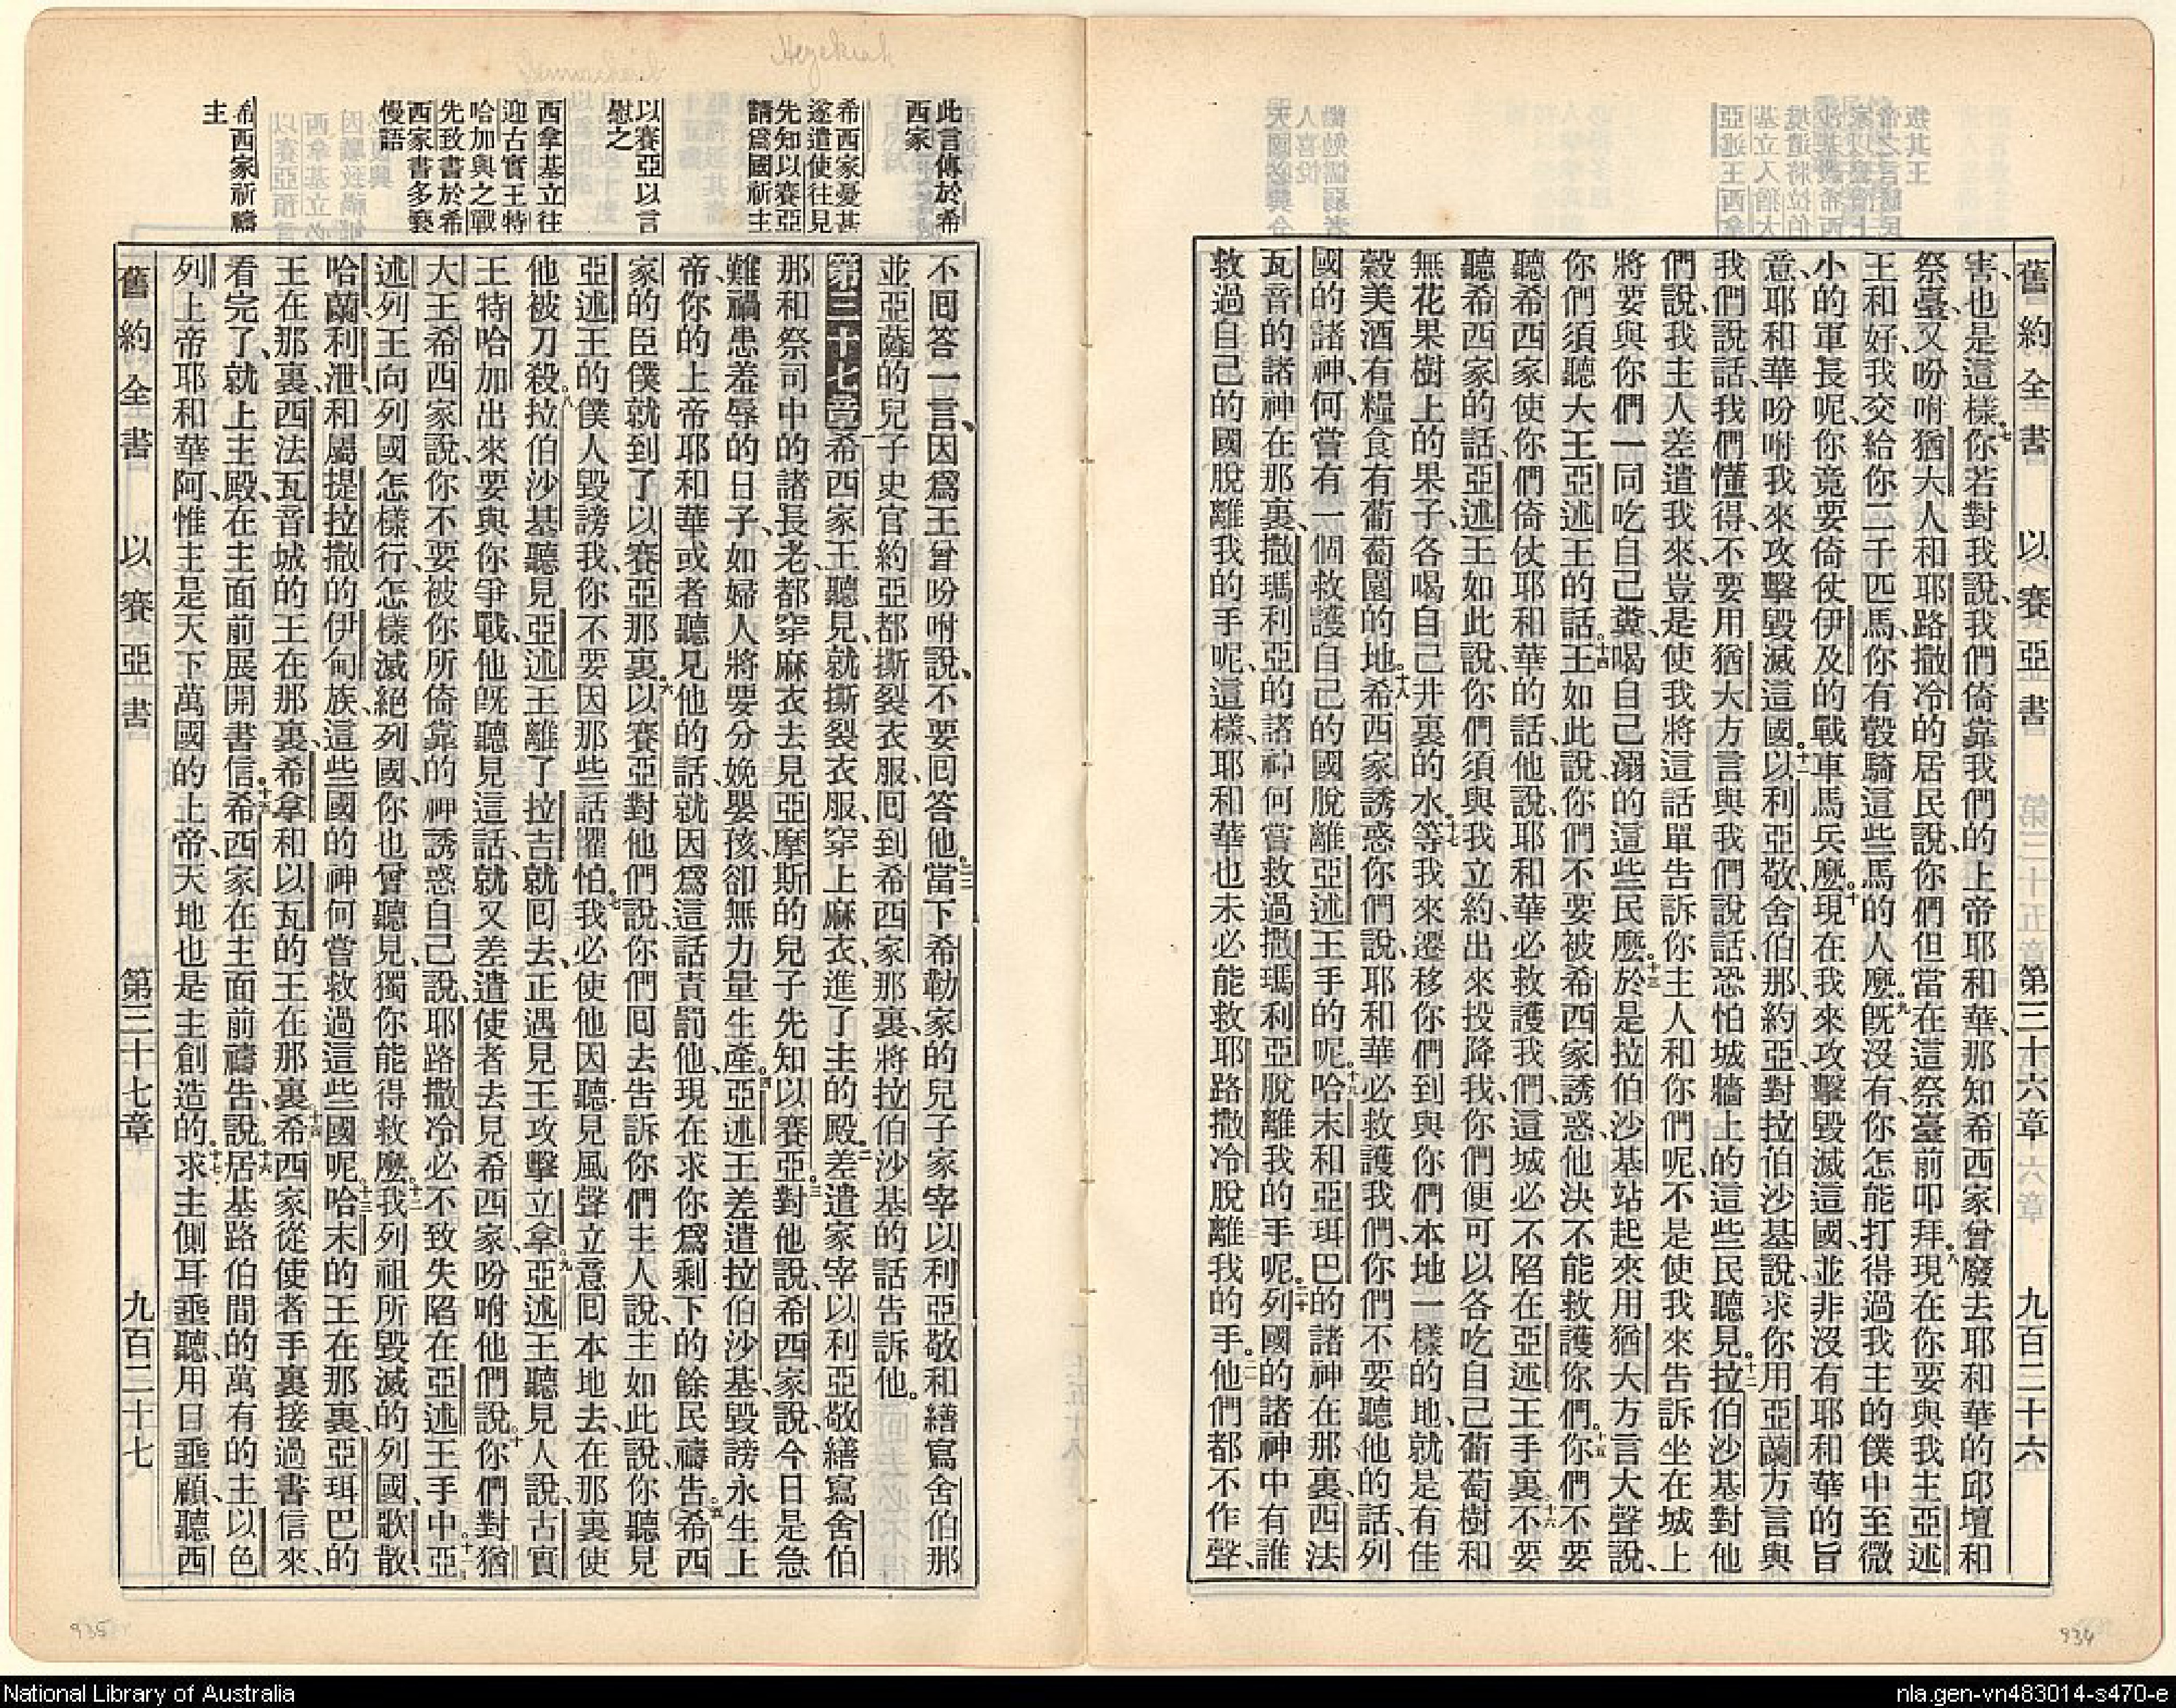 舊約全書 以賽亞書 第三十六章 九百二十六
害、也是這樣、七你若對我說、我們倚靠我們的上帝耶和華、那知希西家曾廢去耶和華的邱壇和
祭臺、又吩咐猶大人和耶路撒冷的居民說、你們但當在這祭臺前叩拜。八現在你要與我主亞述
王和好、我交給你二千匹馬、你有彀騎這些馬的人麼。九既沒有、你怎能打得過我主的僕中至微
小的軍長呢、你竟要倚仗伊及的戰車馬兵麼。十現在我來攻擊毀滅這國、並非沒有耶和華的旨
意、耶和華吩咐我來攻擊毀滅這國。十一以利亞敬、舍伯那、約亞、對拉伯沙基說、求你用亞蘭方言與
我們說話、我們懂得、不要用猶大方言與我們說話、恐怕城牆上的這些民聽見。十二拉伯沙基對他
們說、我主人差遣我來、豈是使我將這話單告訴你主人和你們呢、不是使我來告訴坐在城上
將要與你們一同吃自己糞、喝自己溺的這些民麼。十三於是拉伯沙基站起來用猶大方言大聲說、
你們須聽大王亞述王的話。十四王如此說、你們不要被希西家誘惑、他決不能救護你們。十五你們不要
聽希西家使你們倚仗耶和華的話、他說、耶和華必救護我們、這城必不陷在亞述王手裏。十六不要
聽希西家的話、亞述王如此說、你們須與我立約、出來投降我、你們便可以各吃自己葡萄樹和
無花果樹上的果子、各喝自己井裏的水。十七等我來遷移你們到與你們本地一樣的地、就是有佳
穀美酒有糧食有葡萄園的地。十八希西家誘惑你們說、耶和華必救護我們、你們不要聽他的話、列
國的諸神、何嘗有一個救護自己的國脫離亞述王手的呢。十九哈末和亞珥巴的諸神在那裏、西法
瓦音的諸神在那裏、撒瑪利亞的諸神何嘗救過撒瑪利亞脫離我的手呢。二十列國的諸神中有誰
救過自己的國脫離我的手呢、這樣、耶和華也未必能救耶路撒冷脫離我的手。二一他們都不作聲、
此言傳於希
西家
希西家憂甚
遂遣使往見
先知以賽亞
請爲國祈主
以賽亞以言
慰之
西拿基立往
迎古實王特
哈加與之戰
先致書於希
西家書多褻
慢語
希西家祈禱
主
不囘答一言、因爲王曾吩咐說、不要囘答他。二二當下希勒家的兒子家宰以利亞敬、和繕寫舍伯那
並亞薩的兒子史官約亞、都撕裂衣服、囘到希西家那裏、將拉伯沙基的話告訴他。
第三十七章 一希西家王聽見、就撕裂衣服、穿上麻衣、進了主的殿。二差遣家宰以利亞敬、繕寫舍伯
那、和祭司中的諸長老、都穿麻衣、去見亞摩斯的兒子先知以賽亞。三對他說、希西家說、今日是急
難禍患羞辱的日子、如婦人將要分娩嬰孩、卻無力量生產。四亞述王差遣拉伯沙基、毀謗永生上
帝、你的上帝耶和華或者聽見他的話、就因爲這話責罰他、現在求你爲剩下的餘民禱告。五希西
家的臣僕就到了以賽亞那裏。六以賽亞對他們說、你們囘去告訴你們主人說、主如此說、你聽見
亞述王的僕人毀謗我、你不要因那些話懼怕。七我必使他因聽見風聲立意囘本地去、在那裏使
他被刀殺。八拉伯沙基聽見亞述王離了拉吉、就囘去、正遇見王攻擊立拿。九亞述王聽見人說、古實
王特哈加出來要與你爭戰、他既聽見這話、就又差遣使者去見希西家、吩咐他們說。十你們對猶
大王希西家說、你不要被你所倚靠的神誘惑自己說、耶路撒冷必不致失陷在亞述王手中。十一亞
述列王向列國怎樣行、怎樣滅絕列國、你也曾聽見、獨你能得救麼。十二我列祖所毀滅的列國、歌散、
哈蘭、利泄、和屬提拉撒的伊甸族、這些國的神何嘗救過這些國呢。十三哈末的王在那裏、亞珥巴的
王在那裏、西法瓦音城的王在那裏、希拿和以瓦的王在那裏。十四希西家從使者手裏接過書信來、
看完了、就上主殿、在主面前展開書信。十五希西家在主面前禱告說。十六居基路伯間的萬有的主以色
列上帝耶和華阿、惟主是天下萬國的上帝、天地也是主創造的。十七求主側耳垂聽、用目垂顧、聽西
舊約全書 以賽亞書 第三十七章 九百二十七
Hezekiah
935
934
National Library of Australia
nla.gen-vn483014-s470-e